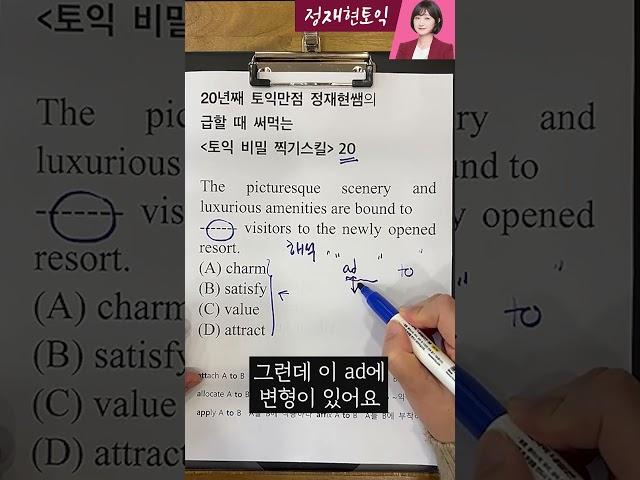 정재현토익
20년째 토익만점 정재현쌤의
급할 때 써먹는
<토익 비밀 찍기스킬> 20
The picturesque scenery and
luxurious amenities are bound to
------- visitors to the newly opened
resort.
해석
(A) charm
ad to
(B) satisfy
(C) value
(D) attract
attach A to B
allocate A to B
apply A to B
affix A to B
그런데 이 ad에
변형이 있어요